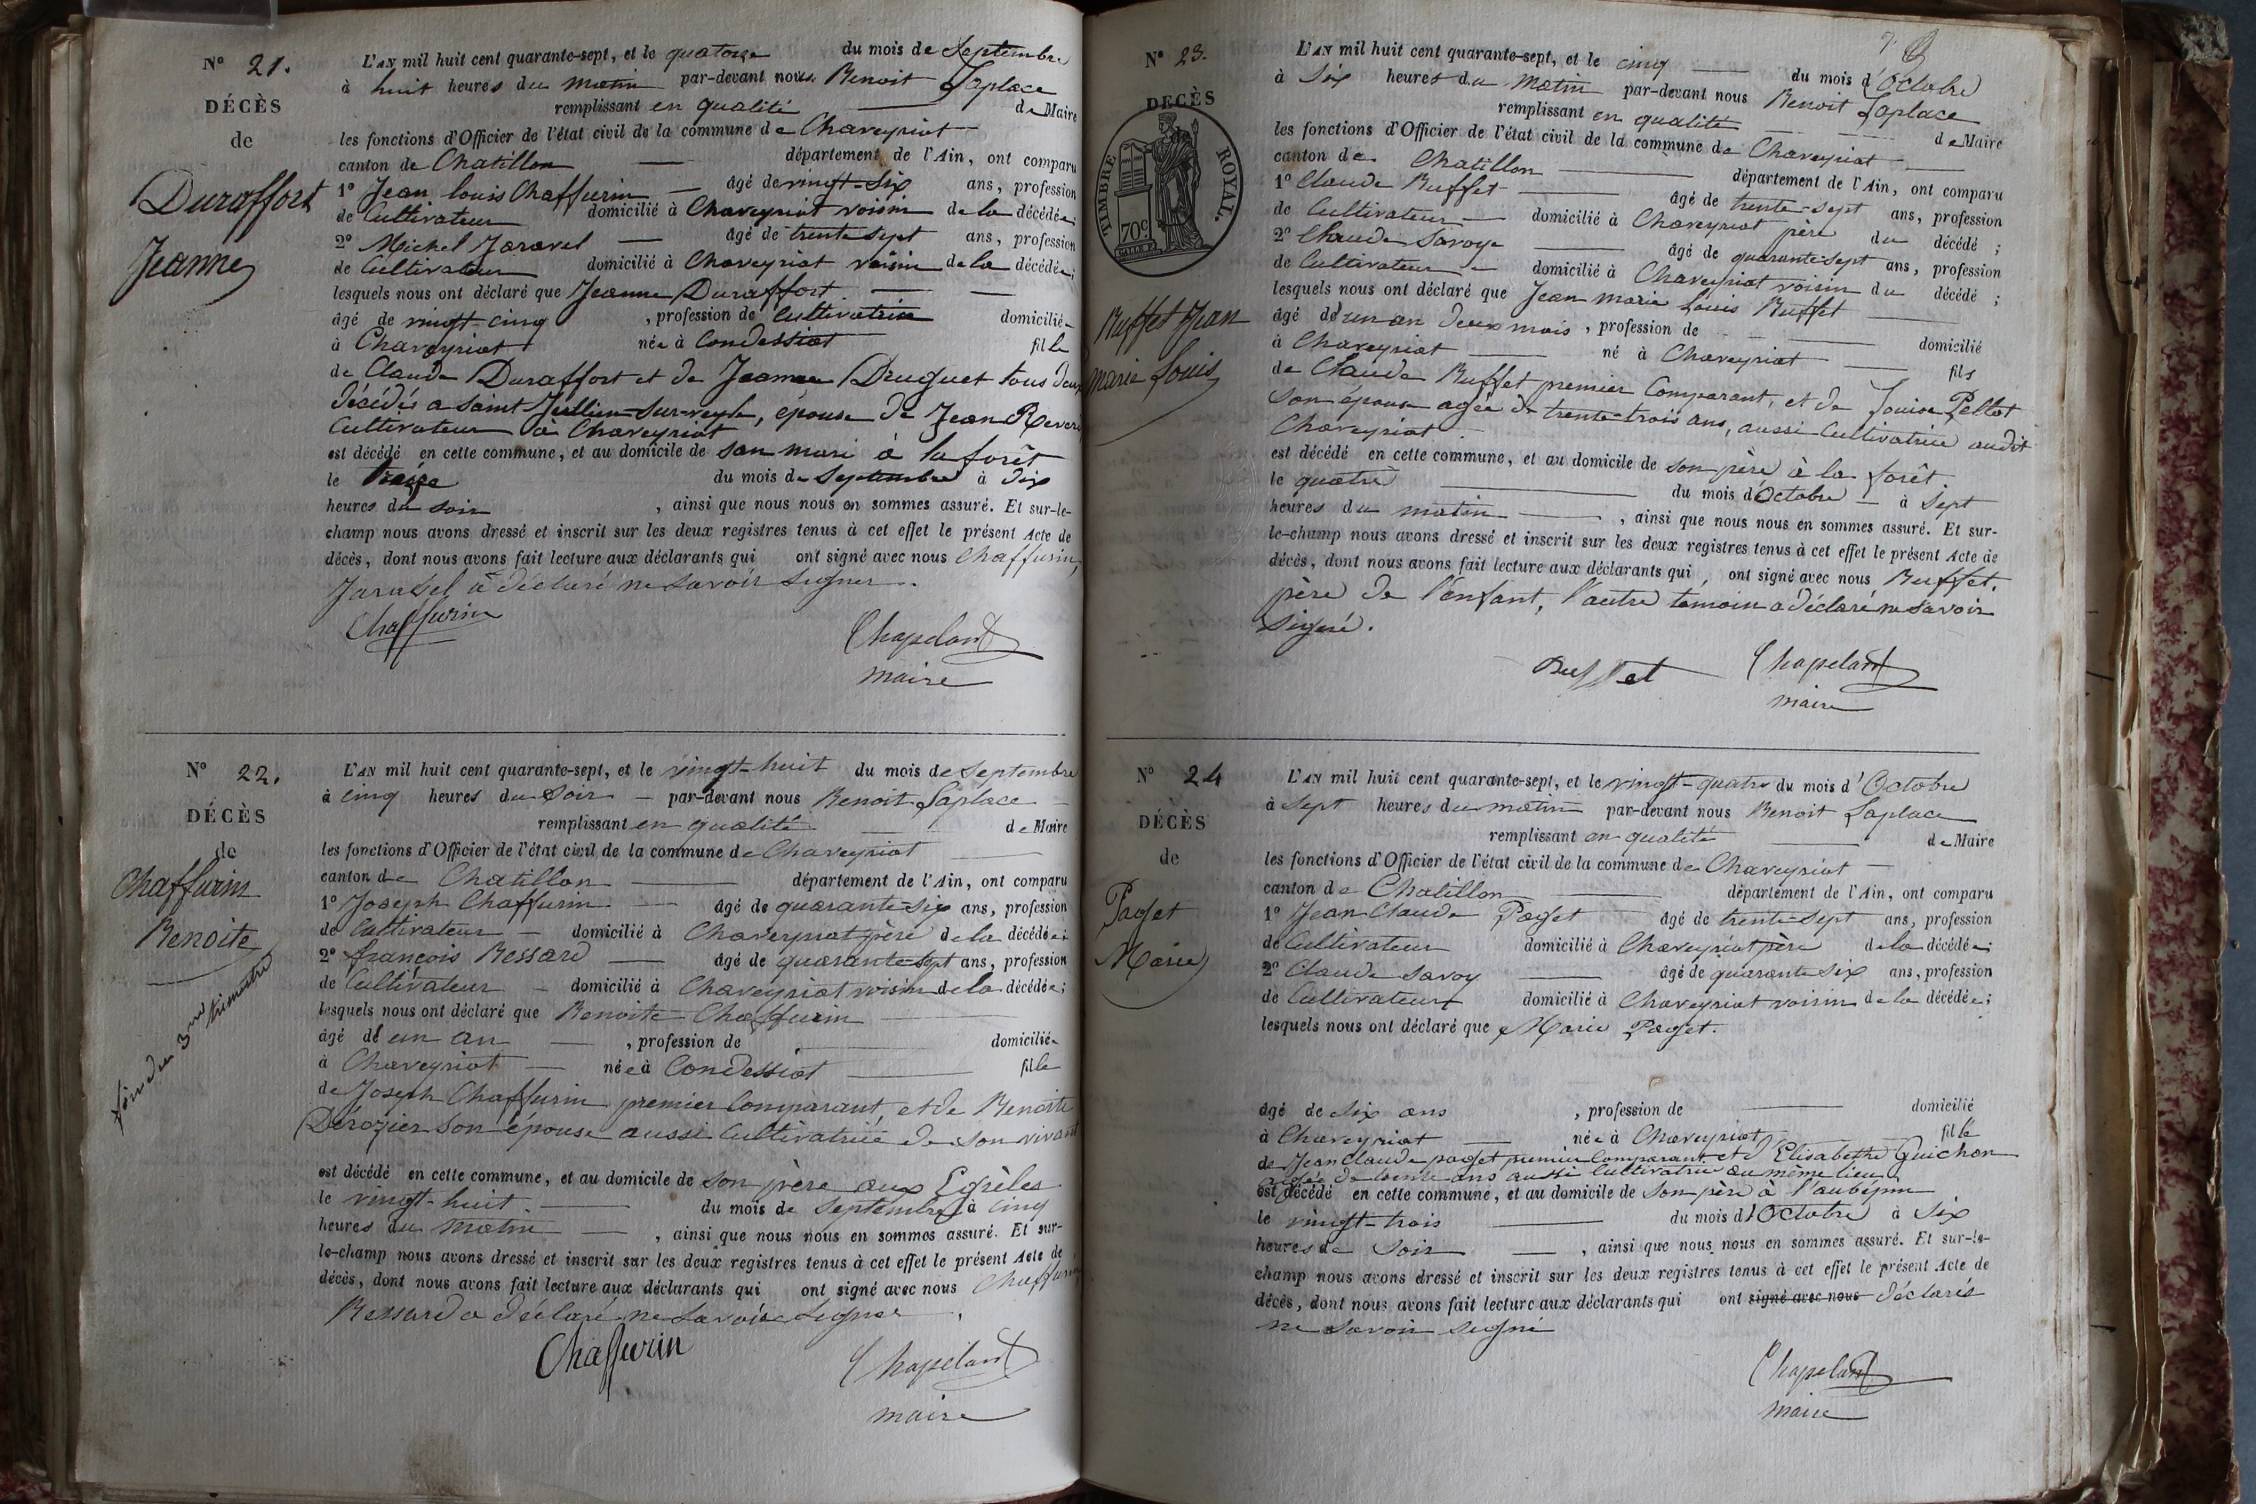 N° 21.
DÉCÈS
de
Duraffort
Jeanne
L'AN mil huit cent quarante-sept, et le quatorze du mois de Septembre
à huit heures du matin par-devant nous Benoit Laplace
remplissant en qualité de Maire
les fonctions d'Officier de l'état civil de la commune de Chaveyriat
canton de Chatillon département de l'Ain, ont comparu
1° Jean louis Chaffurin âgé de vingt-six ans, profession
de Cultivateur domicilié à Chaveyriat voisin de la décédée;
2° Michel Jaravel âgé de trente sept ans, profession
de Cultivateur domicilié à Chaveyriat voisin de la décédée;
lesquels nous ont déclaré que Jeanne Duraffort
âgé de vingt-cinq , profession de Cultivatrice domicilié
à Chaveyriat née à Condessiat fille
de Claude Duraffort et de Jeanne Druguet tous deux
décédés a saint Jullien-sur-veyle, épouse de Jean
Cultivateur à Chaveyriat
est décédé en cette commune, et au domicile de son mari à la forêt
le treize du mois de Septembre à dix
heures du soir , ainsi que nous nous en sommes assuré. Et sur-le-
champ nous avons dressé et inscrit sur les deux registres tenus à cet effet le présent Acte de
décès, dont nous avons fait lecture aux déclarants qui ont signé avec nous Chaffurin,
Jaravel à déclaré ne savoir signer.
Chaffurin
Chapeland
maire
N° 22.
DÉCÈS
de
Chaffurin
Benoite
fin du 3me trimestre
L'AN mil huit cent quarante-sept, et le vingt-huit du mois de Septembre
à cinq heures du Soir par-devant nous Benoit Laplace
remplissant en qualité de Maire
les fonctions d'Officier de l'état civil de la commune de Chaveyriat
canton de Chatillon département de l'Ain, ont comparu
1° Joseph Chaffurin âgé de quarante-six ans, profession
de Cultivateur domicilié à Chaveyriat père de la décédée;
2° françois Bessard âgé de quarante-sept ans, profession
de Cultivateur domicilié à Chaveyriat voisin de la décédée;
lesquels nous ont déclaré que Benoite Chaffurin
âgé de un an , profession de domicilié
à Chaveyriat née à Condessiat fille
de Joseph Chaffurin premier Comparant, et de Benoite
Dérozier son épouse aussi Cultivatrice de son vivant
est décédé en cette commune, et au domicile de son père aux Egrèles
le vingt-huit du mois de Septembre à cinq
heures du matin , ainsi que nous nous en sommes assuré. Et sur-
le-champ nous avons dressé et inscrit sur les deux registres tenus à cet effet le présent Acte de
décès, dont nous avons fait lecture aux déclarants qui ont signé avec nous Chaffurin
Bessard a déclaré ne savoir signer.
Chaffurin
Chapeland
maire
N° 23.
DÉCÈS
TIMBRE ROYAL.
70c
Buffet Jean
marie Louis
L'AN mil huit cent quarante-sept, et le cinq du mois d'Octobre
à Six heures du matin par-devant nous Benoit Laplace
remplissant en qualité de Maire
les fonctions d'Officier de l'état civil de la commune de Chaveyriat
canton de Chatillon département de l'Ain, ont comparu
1° Claude Buffet âgé de trente-sept ans, profession
de Cultivateur domicilié à Chaveyriat père du décédé ;
2° Claude Savoye âgé de quarante-sept ans, profession
de Cultivateur domicilié à Chaveyriat voisin du décédé ;
lesquels nous ont déclaré que Jean marie Louis Buffet
âgé de un an deux mois , profession de domicilié
à Chaveyriat né à Chaveyriat fils
de Claude Buffet premier Comparant, et de Louise Peltot
son épouse agée de trente-trois ans, aussi Cultivatrice audit
Chaveyriat
est décédé en cette commune, et au domicile de son père à la forêt
le quatre du mois d'Octobre à Sept
heures du matin , ainsi que nous nous en sommes assuré. Et sur-
le-champ nous avons dressé et inscrit sur les deux registres tenus à cet effet le présent Acte de
décès, dont nous avons fait lecture aux déclarants qui ont signé avec nous Buffet,
père de l'enfant, l'autre temoin a déclaré ne savoir
signé.
Buffet
Chapeland
maire
N° 24
DÉCÈS
de
Paget
Marie
L'AN mil huit cent quarante-sept, et le vingt-quatre du mois d'Octobre
à Sept heures du matin par-devant nous Benoit Laplace
remplissant en qualité de Maire
les fonctions d'Officier de l'état civil de la commune de Chaveyriat
canton de Chatillon département de l'Ain, ont comparu
1° Jean Claude Paget âgé de trente-sept ans, profession
de Cultivateur domicilié à Chaveyriat père de la décédée;
2° Claude Savoy âgé de quarante six ans, profession
de Cultivateur domicilié à Chaveyriat voisin de la décédée;
lesquels nous ont déclaré que Marie Paget.
âgé de six ans , profession de domicilié
à Chaveyriat née à Chaveyriat fille
de Jean Claude paget premier Comparant et d'Elisabethe Guichon
agée de trente ans aussi Cultivatrice au même lieu
est décédé en cette commune, et au domicile de son père à l'aubépin
le vingt-trois du mois d'Octobre à six
heures de Soir , ainsi que nous nous en sommes assuré. Et sur-le-
champ nous avons dressé et inscrit sur les deux registres tenus à cet effet le présent Acte de
décès, dont nous avons fait lecture aux déclarants qui ont signé avec nous déclarés
ne savoir signé
Chapeland
maire